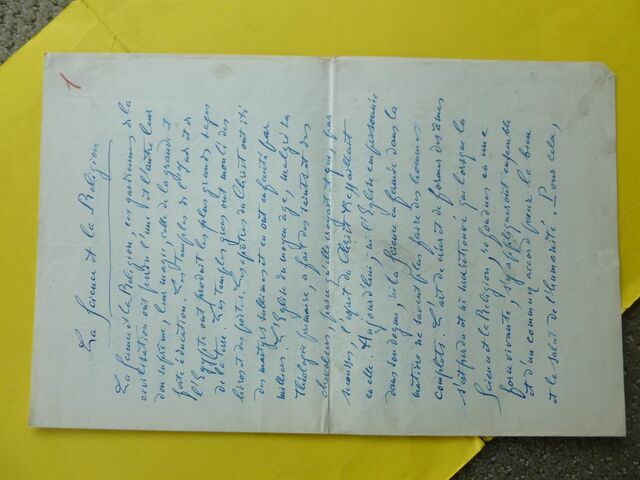 1
La Science et la Religion
La Science et la Religion, ces gardiennes de la
civilisation ont perdu l'une et l'autre leur
don suprême, leur magie, celle de la grande et
forte éducation. Les Temples de l'Inde et de
l'Egypte ont produit les plus grands sages
de la terre. Les temples grecs ont moulé des
héros et des poètes. Les apôtres du Christ ont été
des martyrs sublimes et en ont enfanté par
milliers. L'Eglise du moyen âge, malgré sa
théologie primaire, a fait des saints et des
chevaliers, parce qu'elle croyait et que, par
secousses, l'esprit du Christ tressaillait
en elle. Aujourd'hui, ni l'Eglise emprisonnée
dans son dogme, ni la science enfermée dans la
matière ne savent plus faire des hommes
complets. L'art de créer et de former des âmes
s'est perdu et ne sera retrouvé que lorsque la
Science et la Religion, refondues en une
force vivante, s'y appliqueront ensemble
et d'un commun accord pour le bien
et le salut de l'humanité. Pour cela,